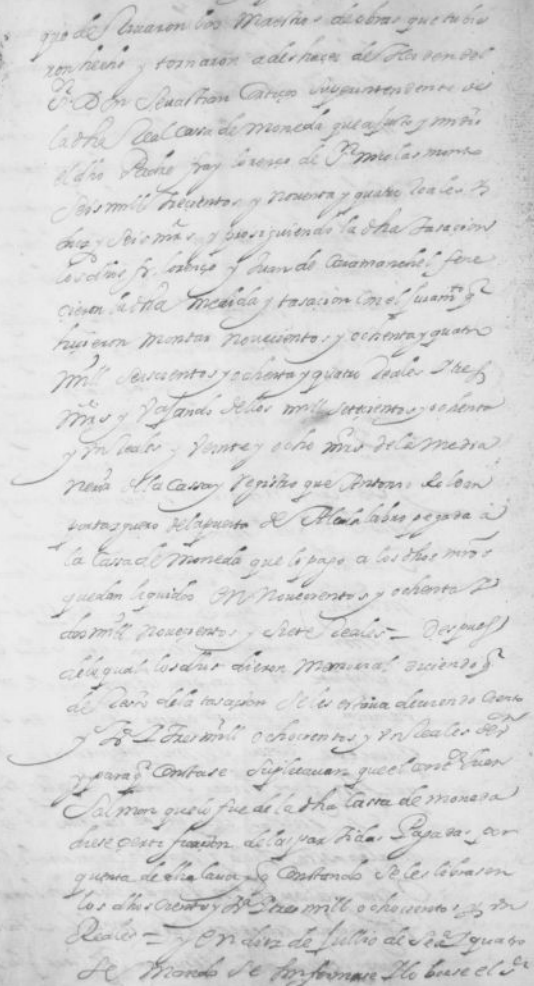 que de llevaron los Maestros de obras que tubie
ron hecho y tornaron a deshacer de horden del
Sr. D Jn Sevastian Superintendente de
la dha Real Casa de Moneda que ajusto y midio
el dho Padre fray lorenço de Sn niculas monto
Seis mill trecientos y noventa y quatro Reales
diez y Seis mrs y prosiguiendo la dha tasacion
los dhos fr lorenço y Juan de Caramanchel fene
cieron la dha medida y tasacion Con el Juramto q
hicieron montar novecientos y ochenta y quatro
mill Seiscientos y ochenta y quatro Reales
mrs y vajando dellos mill setecientos y ochenta
y Vn Reales y Veinte y ocho mrs de la media
de la Cassa y Registro que Antonio de leon
portazguero de la puerta de Alcala labro pegada a
la Cassa de Moneda que lo pago a los dhos mros
quedan liquidos en Novecientos y ochenta y
dos mill novecientos y Siete Reales = Despues
de lo qual los dhos dieron Memorial diciendo q
de Resto de la tasacion Se les estava deviendo Ciento
y tres mill ochocientos y Vn Reales
y para q Constase Suplicavan que el Juan
Salmon que lo fue de la dha Cassa de moneda
diese certificazion de las partidas Pagadas por
quenta de dha y q Constando Se les librasen
los dhos Ciento y tres mill ochocientos y Vn
Reales = y en diez de Jullio de y quatro
Se Mando Se Informase el Sr